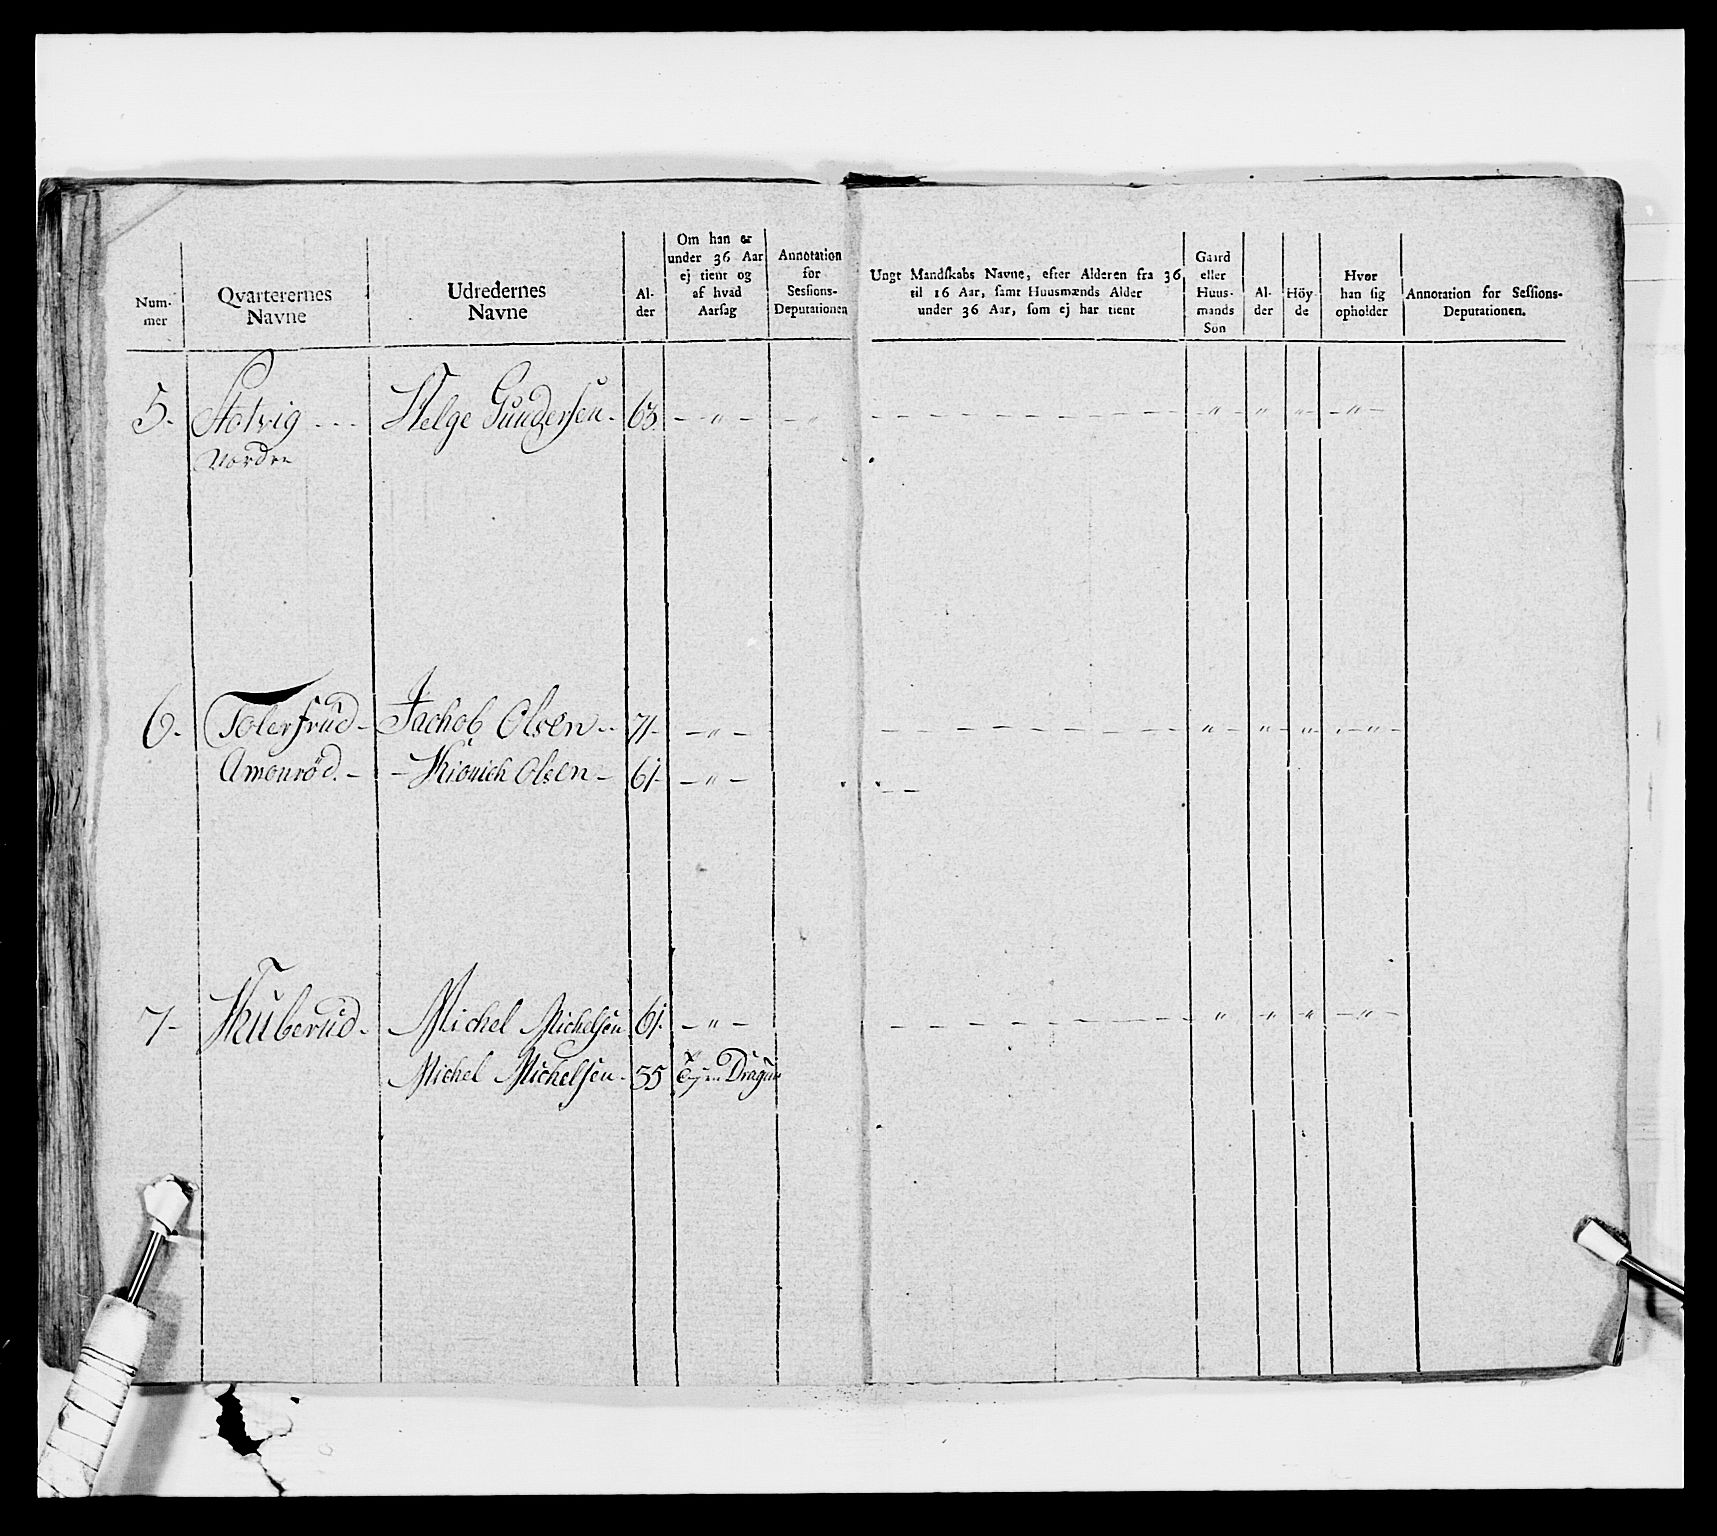 Num-
mer
Qvarterernes
Navne
Udredernes
Navne
Al-
der
Om han er
under 36 Aar
ej tient og
af hvad
Aarsag
Annotation
for
Sessions-
Deputationen
Ungt Mandskabs Navne, efter Alderen fra 36
til 16 Aar, samt Huusmænds Alder
under 36 Aar, som ej har tient
Gaard
eller
Huus-
mands
Søn
Al-
der
Höy-
de
Hvor
han sig
opholder
Annotation for Sessions-
Deputationen.
5. Stolvig --- Helge Gundersen. 63. — " — — " — " — " — " — " —
Nordre
6. Tolersrud - Jachob Olsen -. 71- — " — — " — " — " — " —
Amonröd. - - Olsen - 61- — " —
7- Skuberud - Michel Michelsen 61. — " — — " — " — " — " —
Michel Michelsen - 35 Dragun